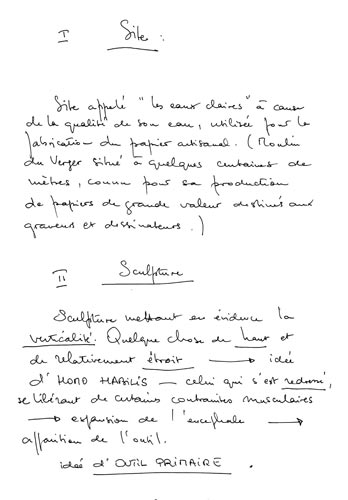 I Site :
Site appelé "les eaux claires" à cause
de la qualité de son eau, utilisée pour la
fabrication du papier artisanal. (Moulin
du Verger situé à quelques centaines de
mètres, connu pour sa production
de papiers de grande valeur destinés aux
graveurs et dessinateurs.)
II Sculpture
Sculpture mettant en évidence la
verticalité. Quelque chose de haut et
de relativement étroit → idée
d'HOMO HABILIS — celui qui s'est redressé,
se libérant de certaines contraintes musculaires
→ expansion de l'encéphale →
apparition de l'outil.
idée d'OUTIL PRIMAIRE.